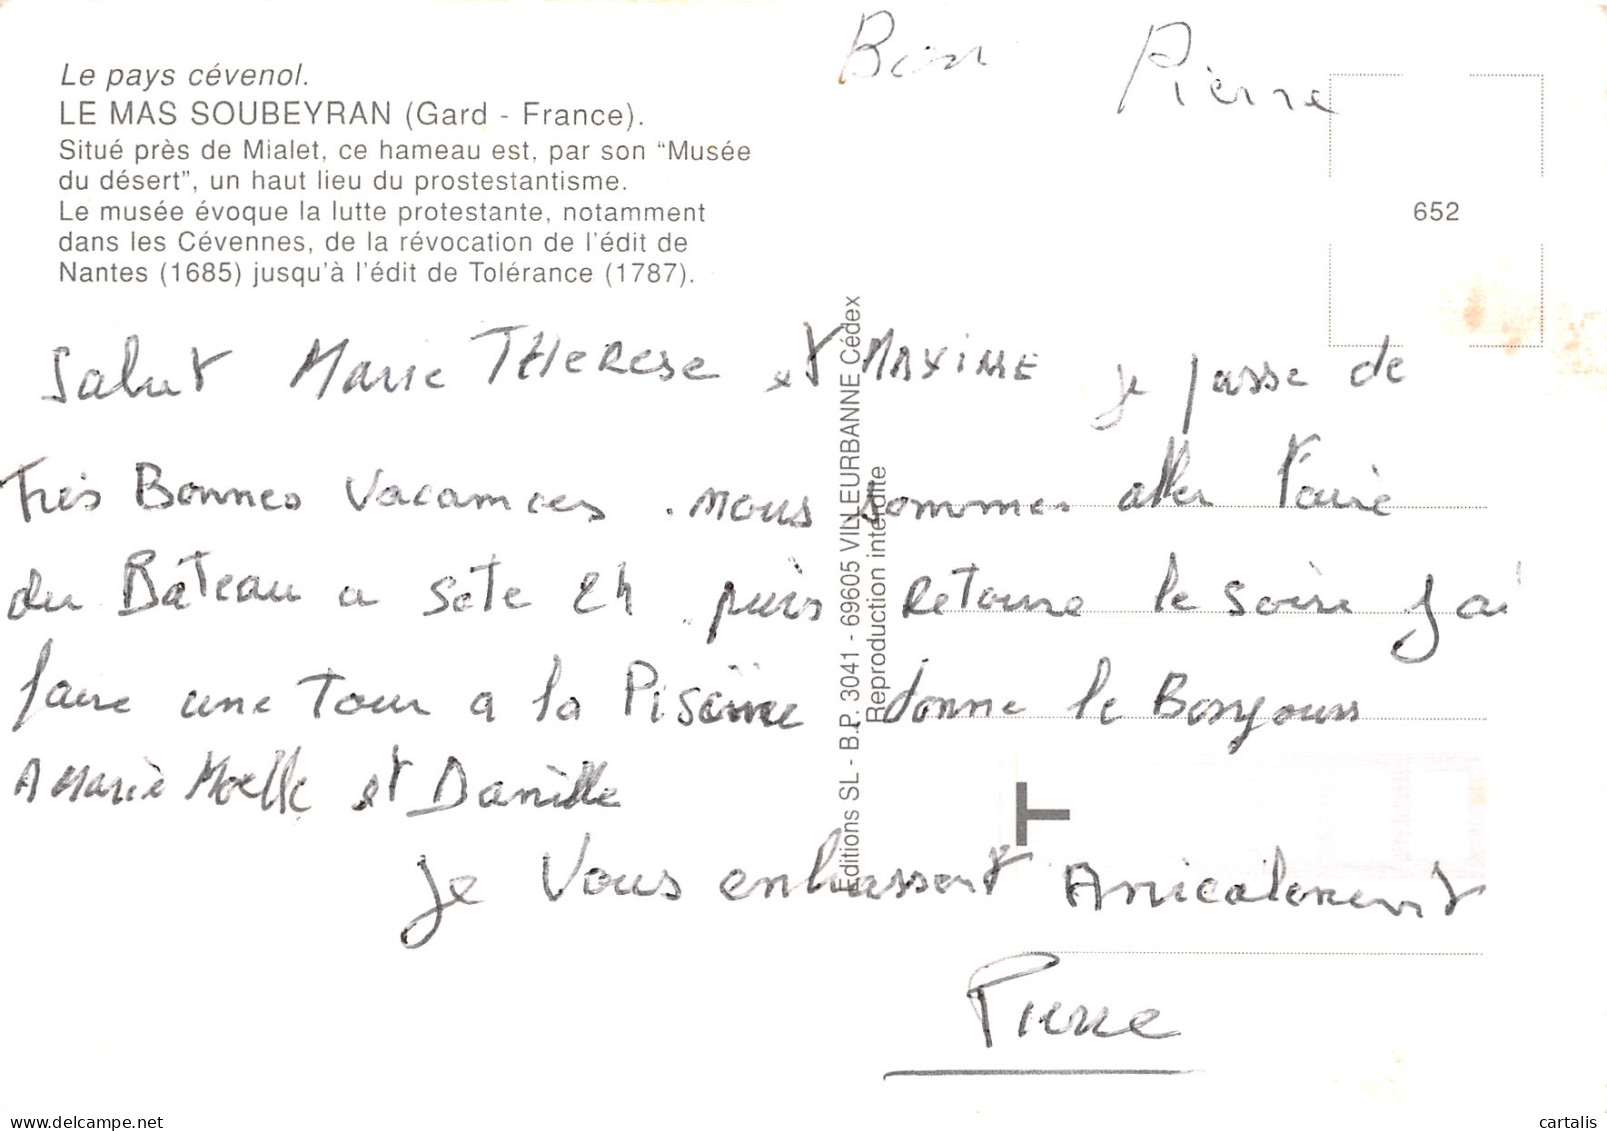 Bien Pierre
Le pays cévenol.
LE MAS SOUBEYRAN (Gard - France).
Situé près de Mialet, ce hameau est, par son "Musée
du désert", un haut lieu du prostestantisme.
Le musée évoque la lutte protestante, notamment
dans les Cévennes, de la révocation de l'édit de
Nantes (1685) jusqu'à l'édit de Tolérance (1787).
652
Salut Marie THERESE et MAXIME je passe de
Très Bonnes vacances . nous sommes aller Faire
du Bateau a sete 2h puis retourne le soire J ai
faire une Tour a la Piscine donne le Bonjours
A Marie Noelle et Danièlle
je Vous enbrassent Amicalement
Pierre
Editions SL - B.P. 3041 - 69605 VILLEURBANNE Cédex
Reproduction interdite
T
cartalis